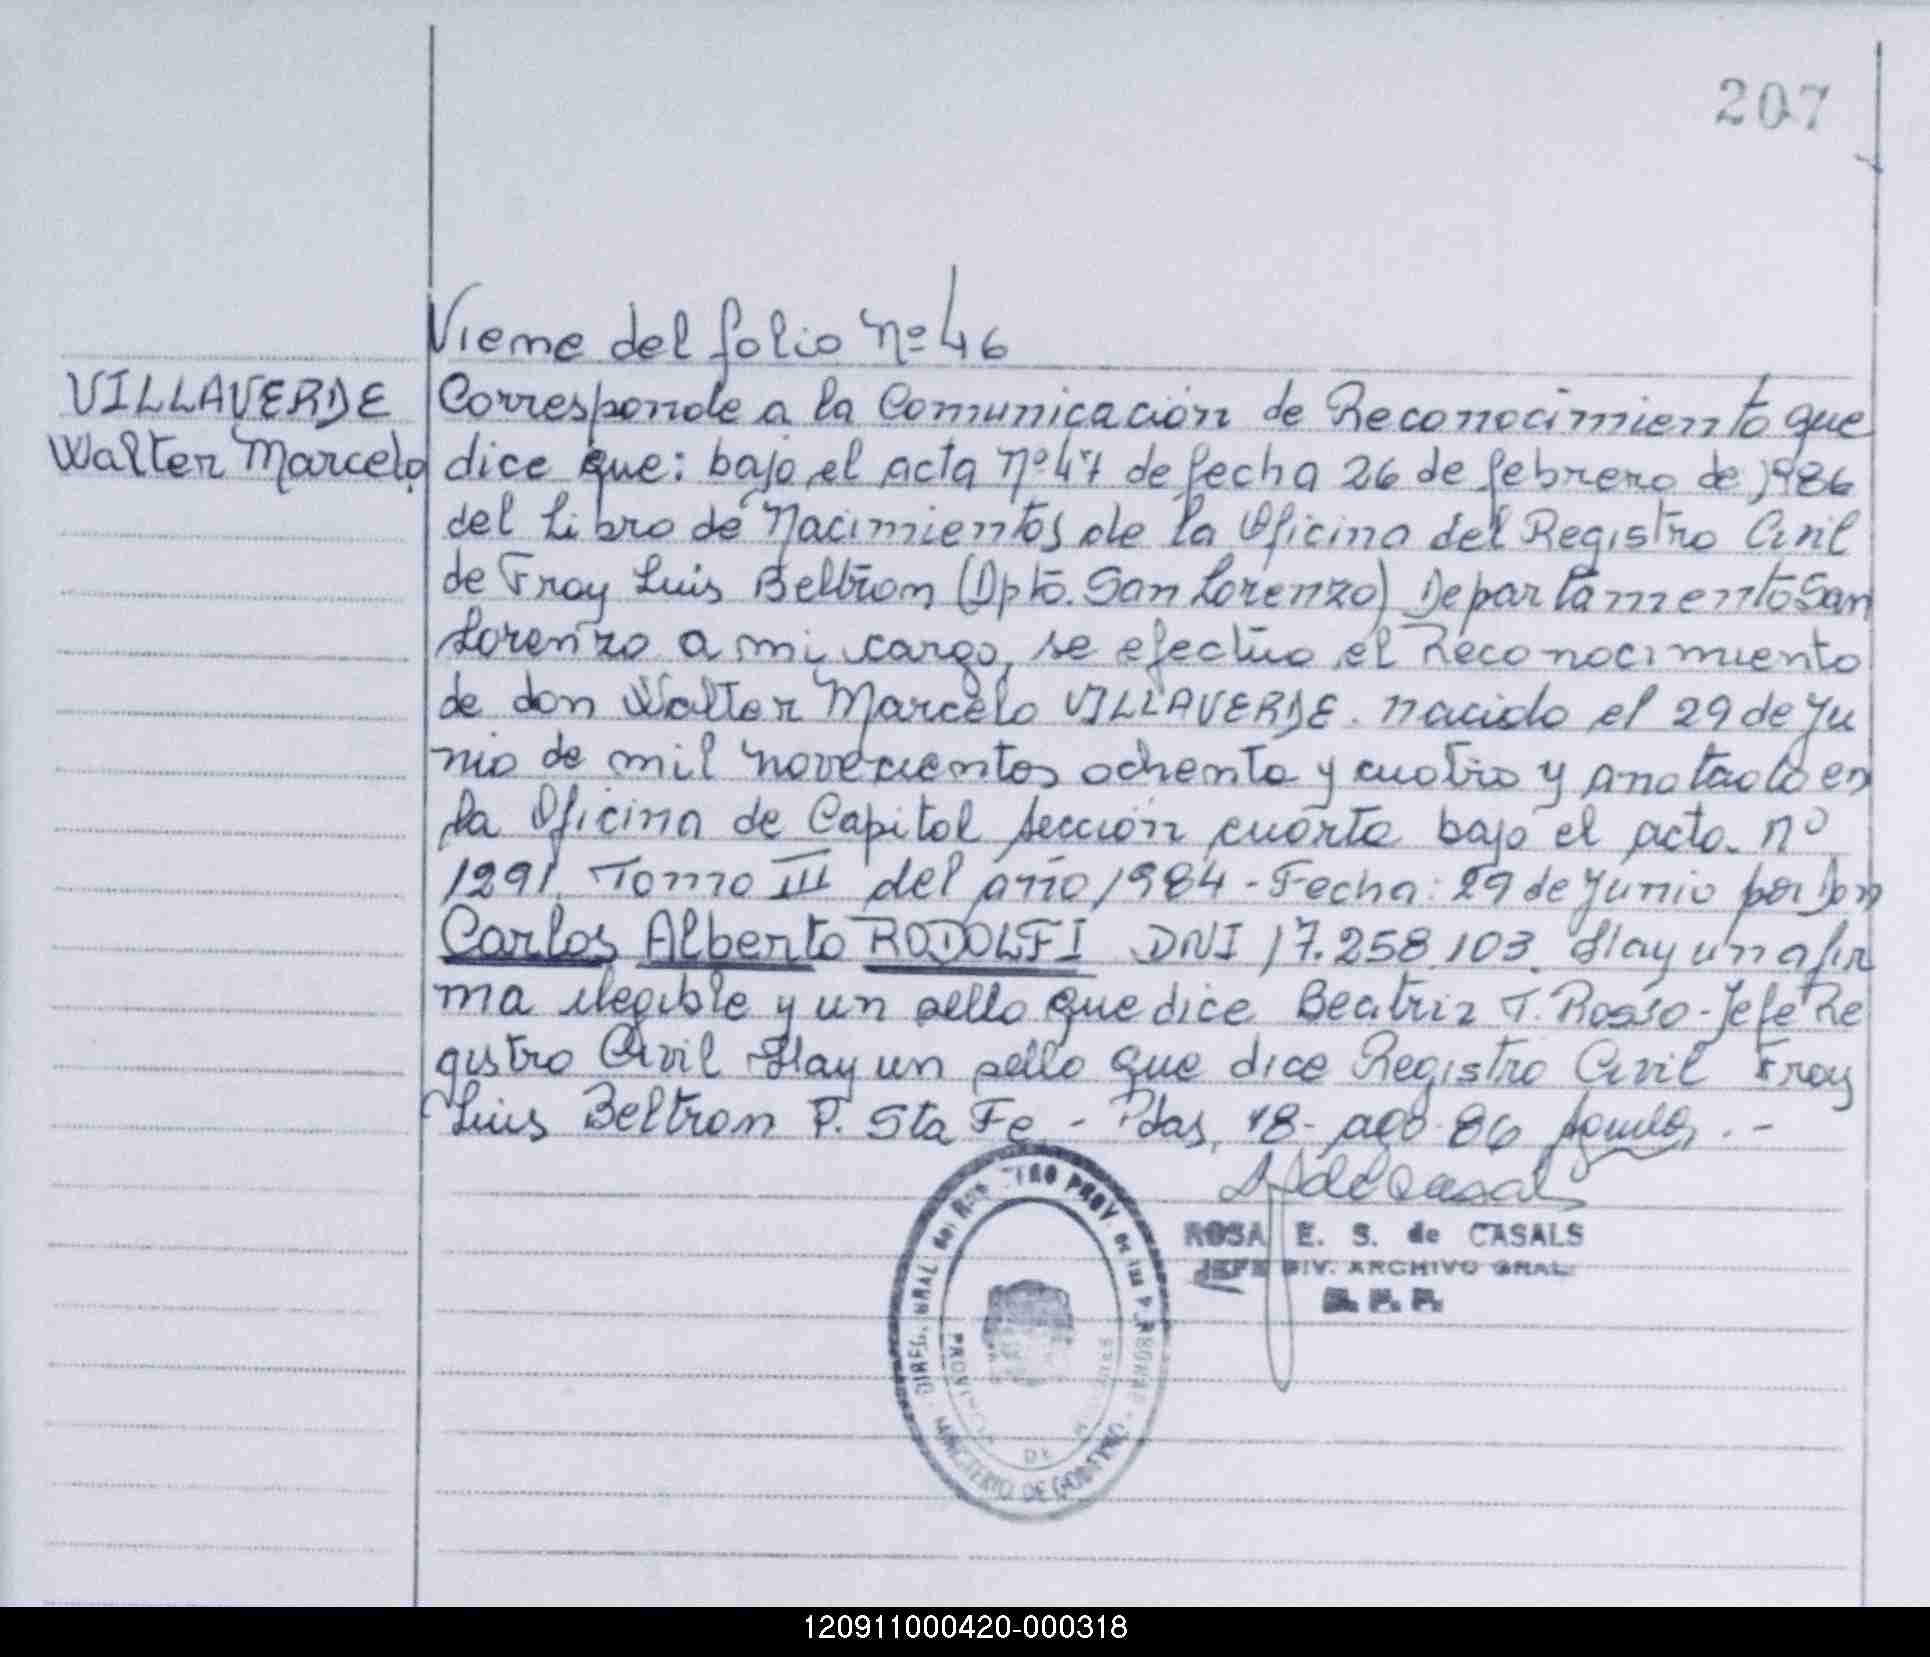 207
Viene del folio nº 46
VILLAVERDE
Walter Marcelo
Corresponde a la Comunicación de Reconocimiento que
dice que: bajo el acta nº 47 de fecha 26 de febrero de 1986
del Libro de Nacimientos de la Oficina del Registro Civil
de Fray Luis Beltrán (Dpto. San Lorenzo) Departamento San
Lorenzo a mi cargo, se efectúo el Reconocimiento
de don Walter Marcelo VILLAVERDE. nacido el 29 de Ju
nio de mil novecientos ochenta y cuatro y anotado en
la Oficina de Capital sección cuarta bajo el acta. nº
1291. Tomo III del año 1984 - Fecha: 29 de Junio por Don
Carlos Alberto RODOLFI DNI 17.258.103. Hay una fir
ma ilegible y un sello que dice Beatriz T. Rosso - Jefe Re
gistro Civil Hay un sello que dice Registro Civil Fray
Luis Beltran P. Sta Fe - Pdas, 18 - ago - 86 . -
ROSA E. S. de CASALS
JEFE DIV. ARCHIVO GRAL.
DIREC. GRAL. del PROV. DE LAS
MINISTERIO DE GOBIERNO
PROVINCIA DE
120911000420-000318